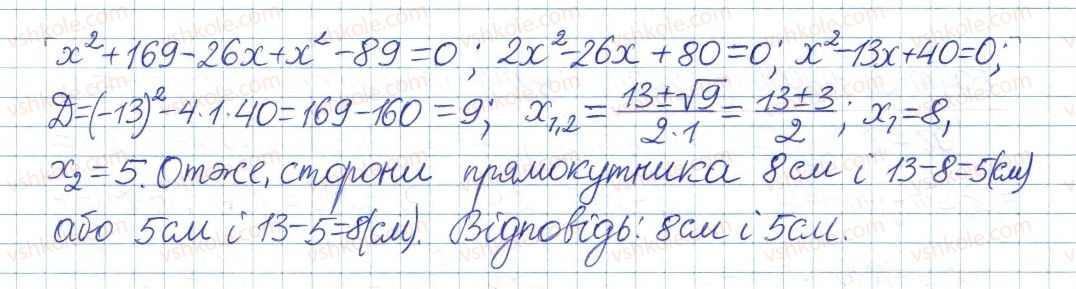 x²+169-26x+x²-89=0; 2x²-26x+80=0; x²-13x+40=0;
Д=(-13)²-4·1·40=169-160=9; x₁,₂=(13±√9)/(2·1)=(13±3)/2; x₁=8,
x₂=5. Отже, сторони прямокутника 8см і 13-8=5(см)
або 5см і 13-5=8(см). Відповідь: 8см і 5см.